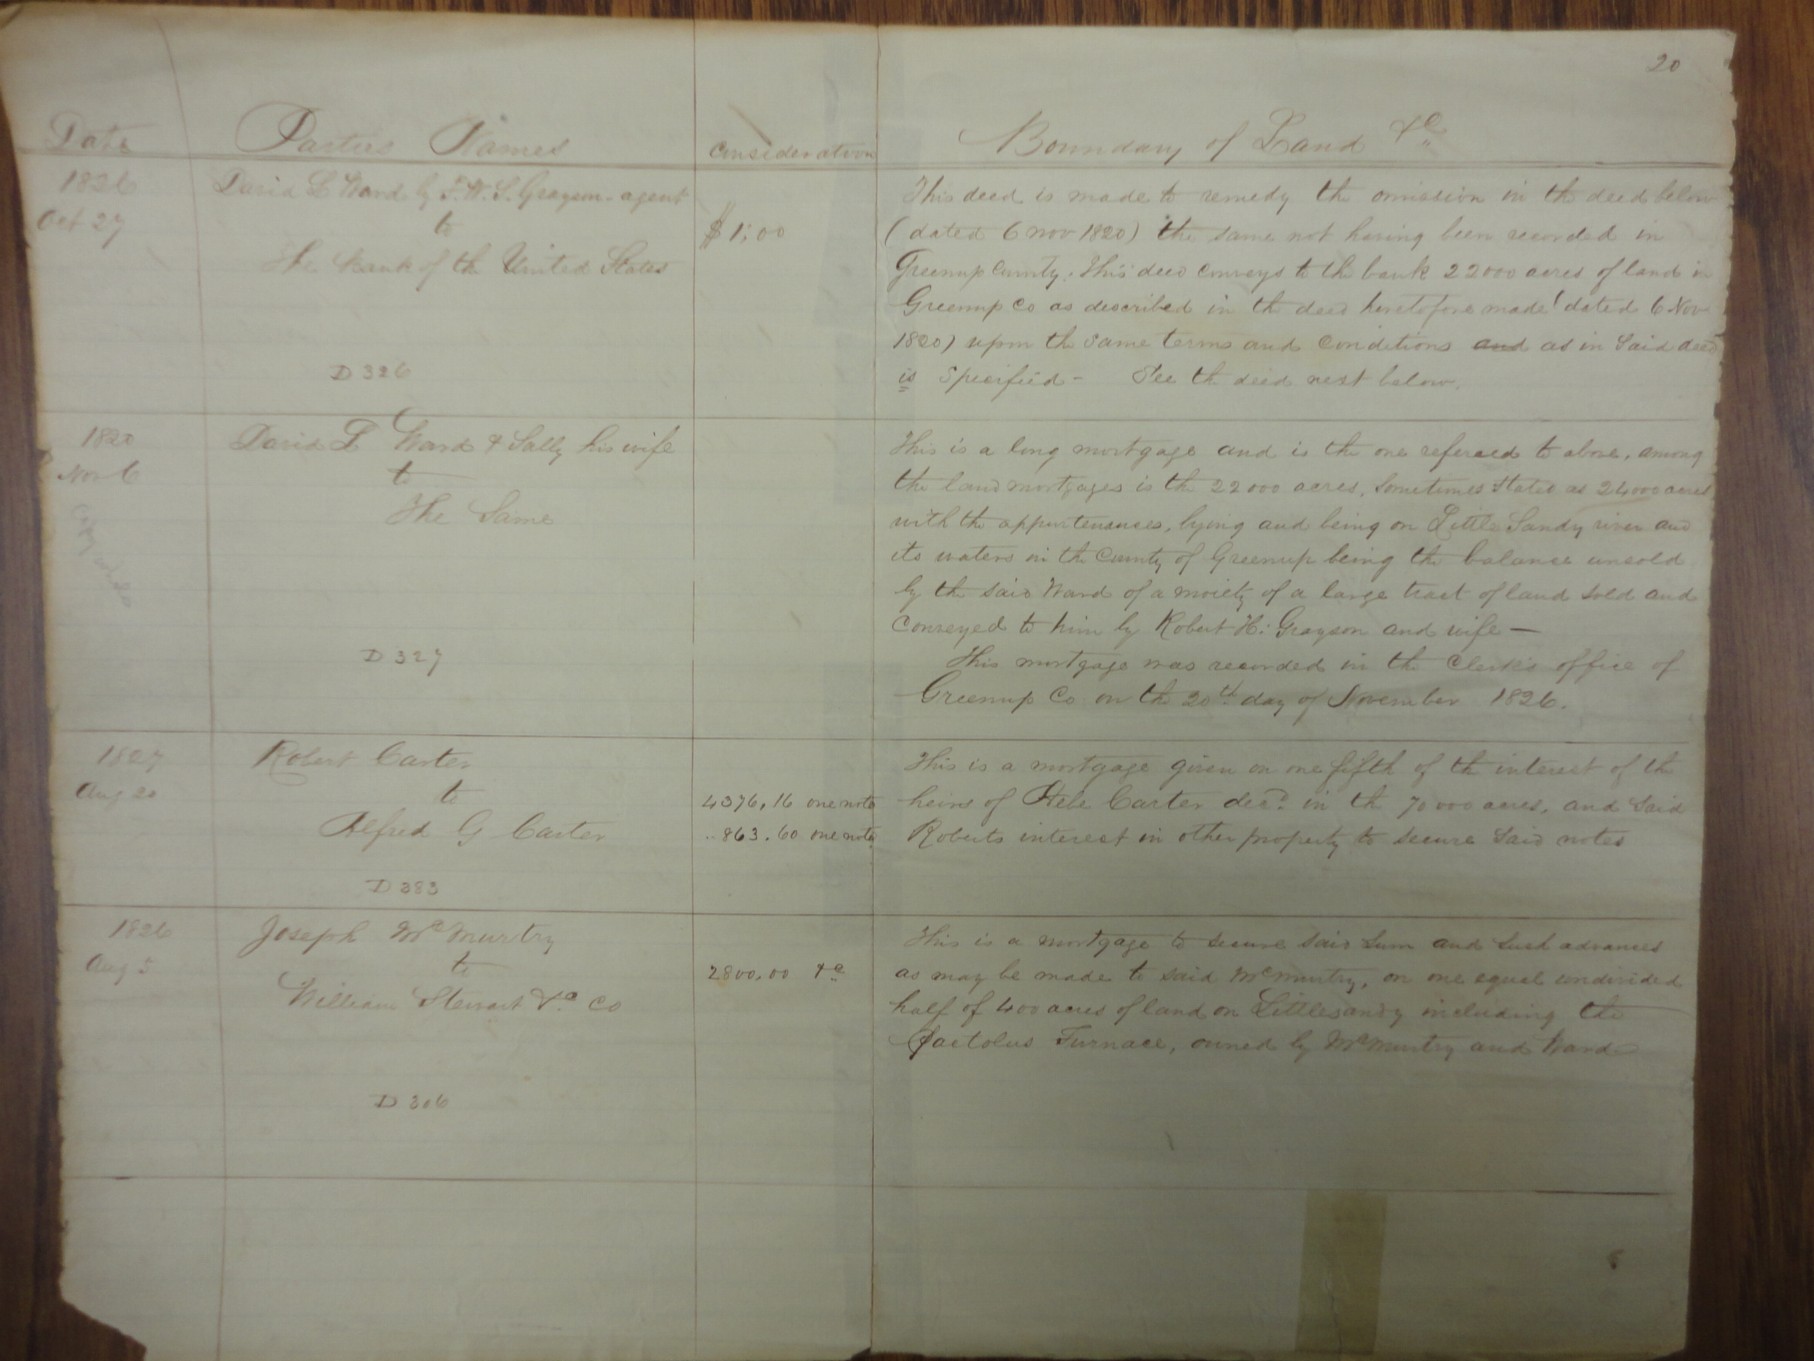 20
Date Parties Names Consideration Boundary of Land &c
1826
Oct 27
David L Ward by F. W. S. Grayson - agent
to
The Bank of the United States
D 326
$ 1,00
This deed is made to remedy the omission in th deed below
( dated 6 Nov 1820) the same not having been recorded in
Greenup County. This deed conveys to the bank 22000 acres of land in
Greenup Co as described in th deed heretofore made ( dated 6 Nov
1820) upon th same terms and conditions and as in said deed
is specified - See th deed next below.
1820
Nov 6
David L Ward & Sally his wife
to
The Same
D 327
This is a long mortgage and is the one refered to above, among
the land mortgages is th 22000 acres, sometimes stated as 24000 acres
with th appurtenances, lying and being on Little Sandy river and
its waters in th County of Greenup being the balance unsold
by th said Ward of a moiety of a large tract of land sold and
conveyed to him by Robert H. Grayson and wife —
This mortgage was recorded in the Clerks office of
Greenup Co on th 20th day of November 1826.
1827
Aug 20
Robert Carter
to
Alfred G Carter
D 383
4376,16 one note
.. 863.60 one note
This is a mortgage given on one fifth of th interest of th
heirs of Hebe Carter decd. in th 70000 acres, and said
Roberts interest in other property to secure said notes
1826
Aug 5
Joseph McMurtry
to
William Stewart & Co
D 306
2800,00 &c
This is a mortgage to secure said sum and such advances
as may be made to said McMurtry, on one equal undivided
half of 400 acres of land on Littlesandy including the
Pactolus Furnace, owned by McMurtry and Ward